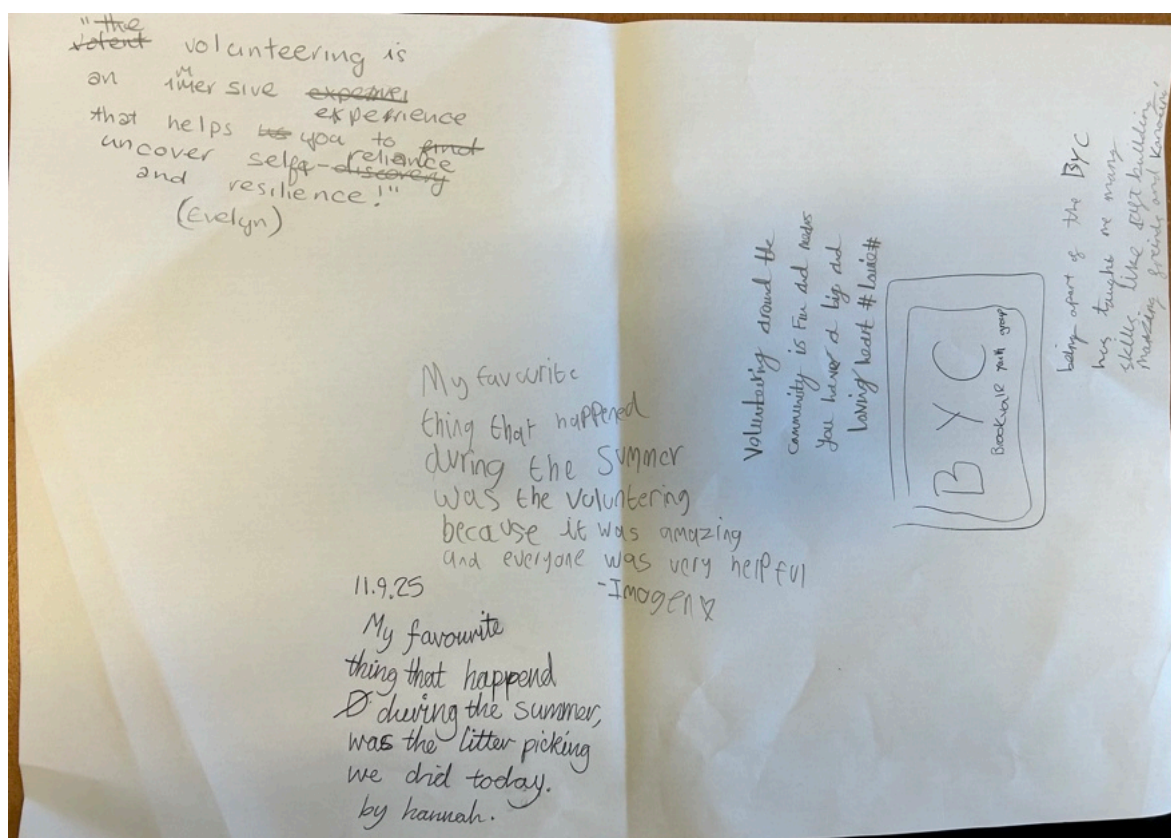 "the
volent volunteering is
an immersive expener
experience
that helps us you to find
uncover self-reliance discovery
and resilience!"
(Evelyn)
My favourite
thing that happened
during the Summer
was the voluntering
because it was amazing
and everyone was very helpful
-Imogen♡
11.9.25
My favourite
thing that happend
during the summer,
was the litter picking
we did today.
by hannah.
Volunteering around the
community is Fun and needs
you have a big and
Loving heart #
B Y C
youth group
being apart of the BYC
has taught me many
skills, like self building
making freinds and